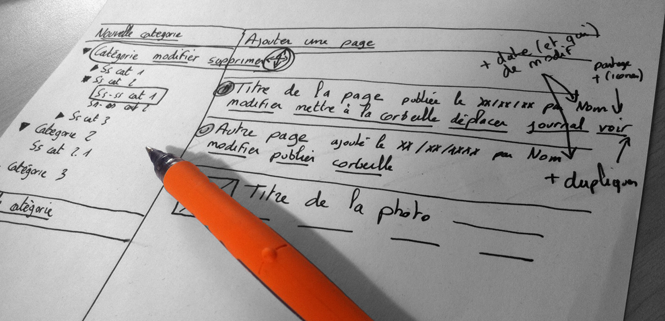 Nouvelle catégorie
Ajouter une page
▼ Catégorie modifier supprimer
▲ Ss cat 1
▼ Ss cat 2
Ss-ss cat 1
cat 2
▶ Ss cat 3
▼ Catégorie 2
Ss cat 2.1
Catégorie 3
catégorie
+ date (et qui)
de modif
partage
+ (icones)
Titre de la page publiée le xx/xx/xx par Nom
modifier mettre à la corbeille déplacer journal voir
Autre page ajouté le xx/xx/xxxx par Nom
modifier publier corbeille
+ dupliquer
Titre de la photo